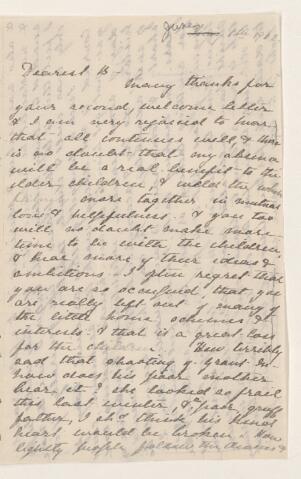 June 8th 1882
Dearest B -
Many thanks for
your second, welcome letter
& I am very rejoiced to hear
that all continues well, & there
is no doubt that my absence
will be a real benefit to the
elder children, & weld the whole
more together in mutual
love & helpfulness. & you too
will no doubt make more
time to be with the children
& hear more of their ideas &
ambitions. I often regret that
you are so occupied, that you
are really left out of many of
the little home schemes &
interests. & that is a great loss
for the children. How terribly
sad that shooting of Grant
how does his poor mother
bear it? she looked so frail
this last winter, & poor, gruff
father, I shd. think his kind
heart would be broken. How
lightly people